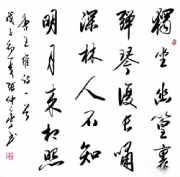 獨坐幽篁裏
彈琴復長嘯
深林人不知
明月来相照
唐王維詩一首
戊子